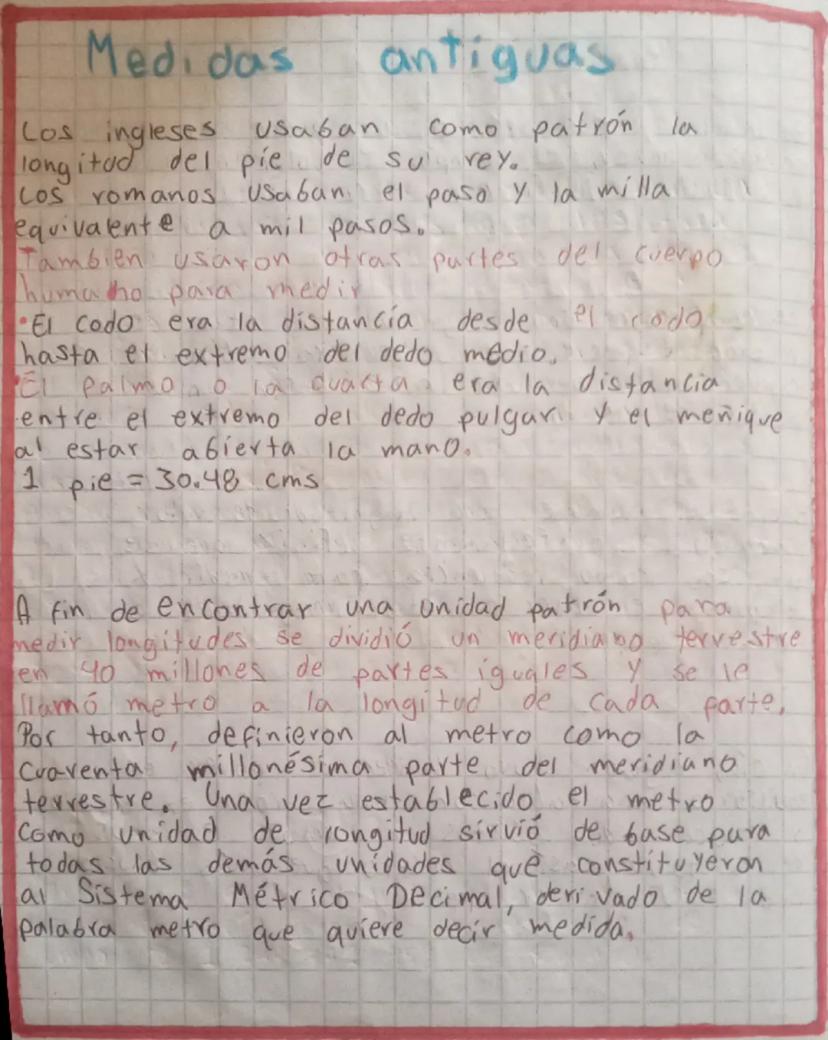 Medidas antiguas
Los ingleses usaban como patrón la
longitud del pie de su rey.
Los romanos usaban el paso y la milla
equivalente a mil pasos.
Tambien usaron otras partes del cuerpo
humano para medir
•El codo era la distancía desde el codo
hasta el extremo del dedo medio.
•El palmo o la cuarta era la distancia
entre el extremo del dedo pulgar y el meñique
al estar abierta la mano.
1 pie = 30.48 cms
A fin de encontrar una unidad patrón para
medir longitudes se dividió un meridiano terrestre
en 40 millones de partes iguales y se le
llamó metro a la longitud de cada parte,
Por tanto, definieron al metro como la
cuarenta millonésima parte del meridiano
terrestre. Una vez establecido el metro
como unidad de longitud sirvió de base para
todas las demás unidades que constituyeron
al Sistema Métrico Decimal, derivado de la
palabra metro que quiere decir medida.